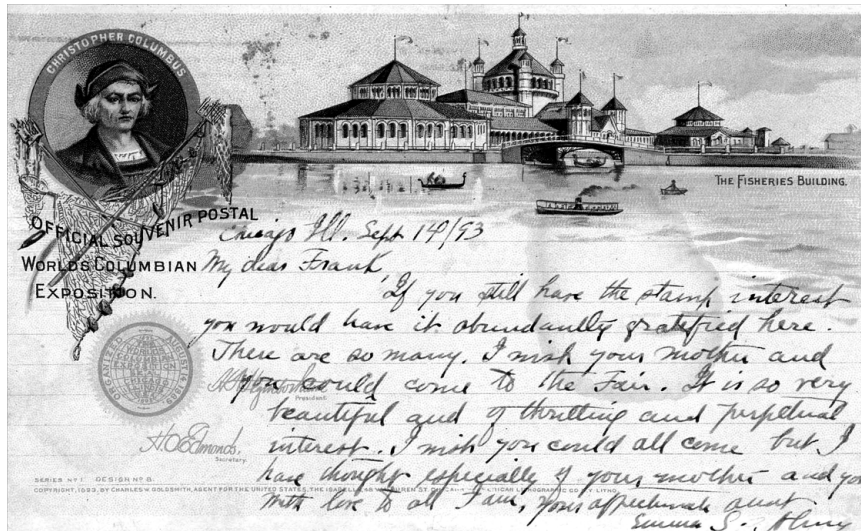 CHRISTOPHER COLUMBUS
THE FISHERIES BUILDING.
OFFICIAL SOUVENIR POSTAL
WORLDS COLUMBIAN
EXPOSITION.
Chicago Ill. Sept 14/93
My dear Frank,
If you still have the stamp interest
you would have it abundantly gratified here.
There are so many. I wish your mother and
you could come to the Fair. It is so very
beautiful and of thrilling and perpetual
interest. I wish you could all come but I
have thought especially of your mother and you
With love to all I am, your affectionate aunt
Emma S.
President.
Secretary.
SERIES Nº 1 DESIGN Nº 8.
COPYRIGHT, 1893, BY CHARLES W. GOLDSMITH, AGENT FOR THE UNITED STATES, THE ISABELLA, 48 VAN BUREN ST. AMERICAN LITHOGRAPHIC CO. N.Y. LITHO.